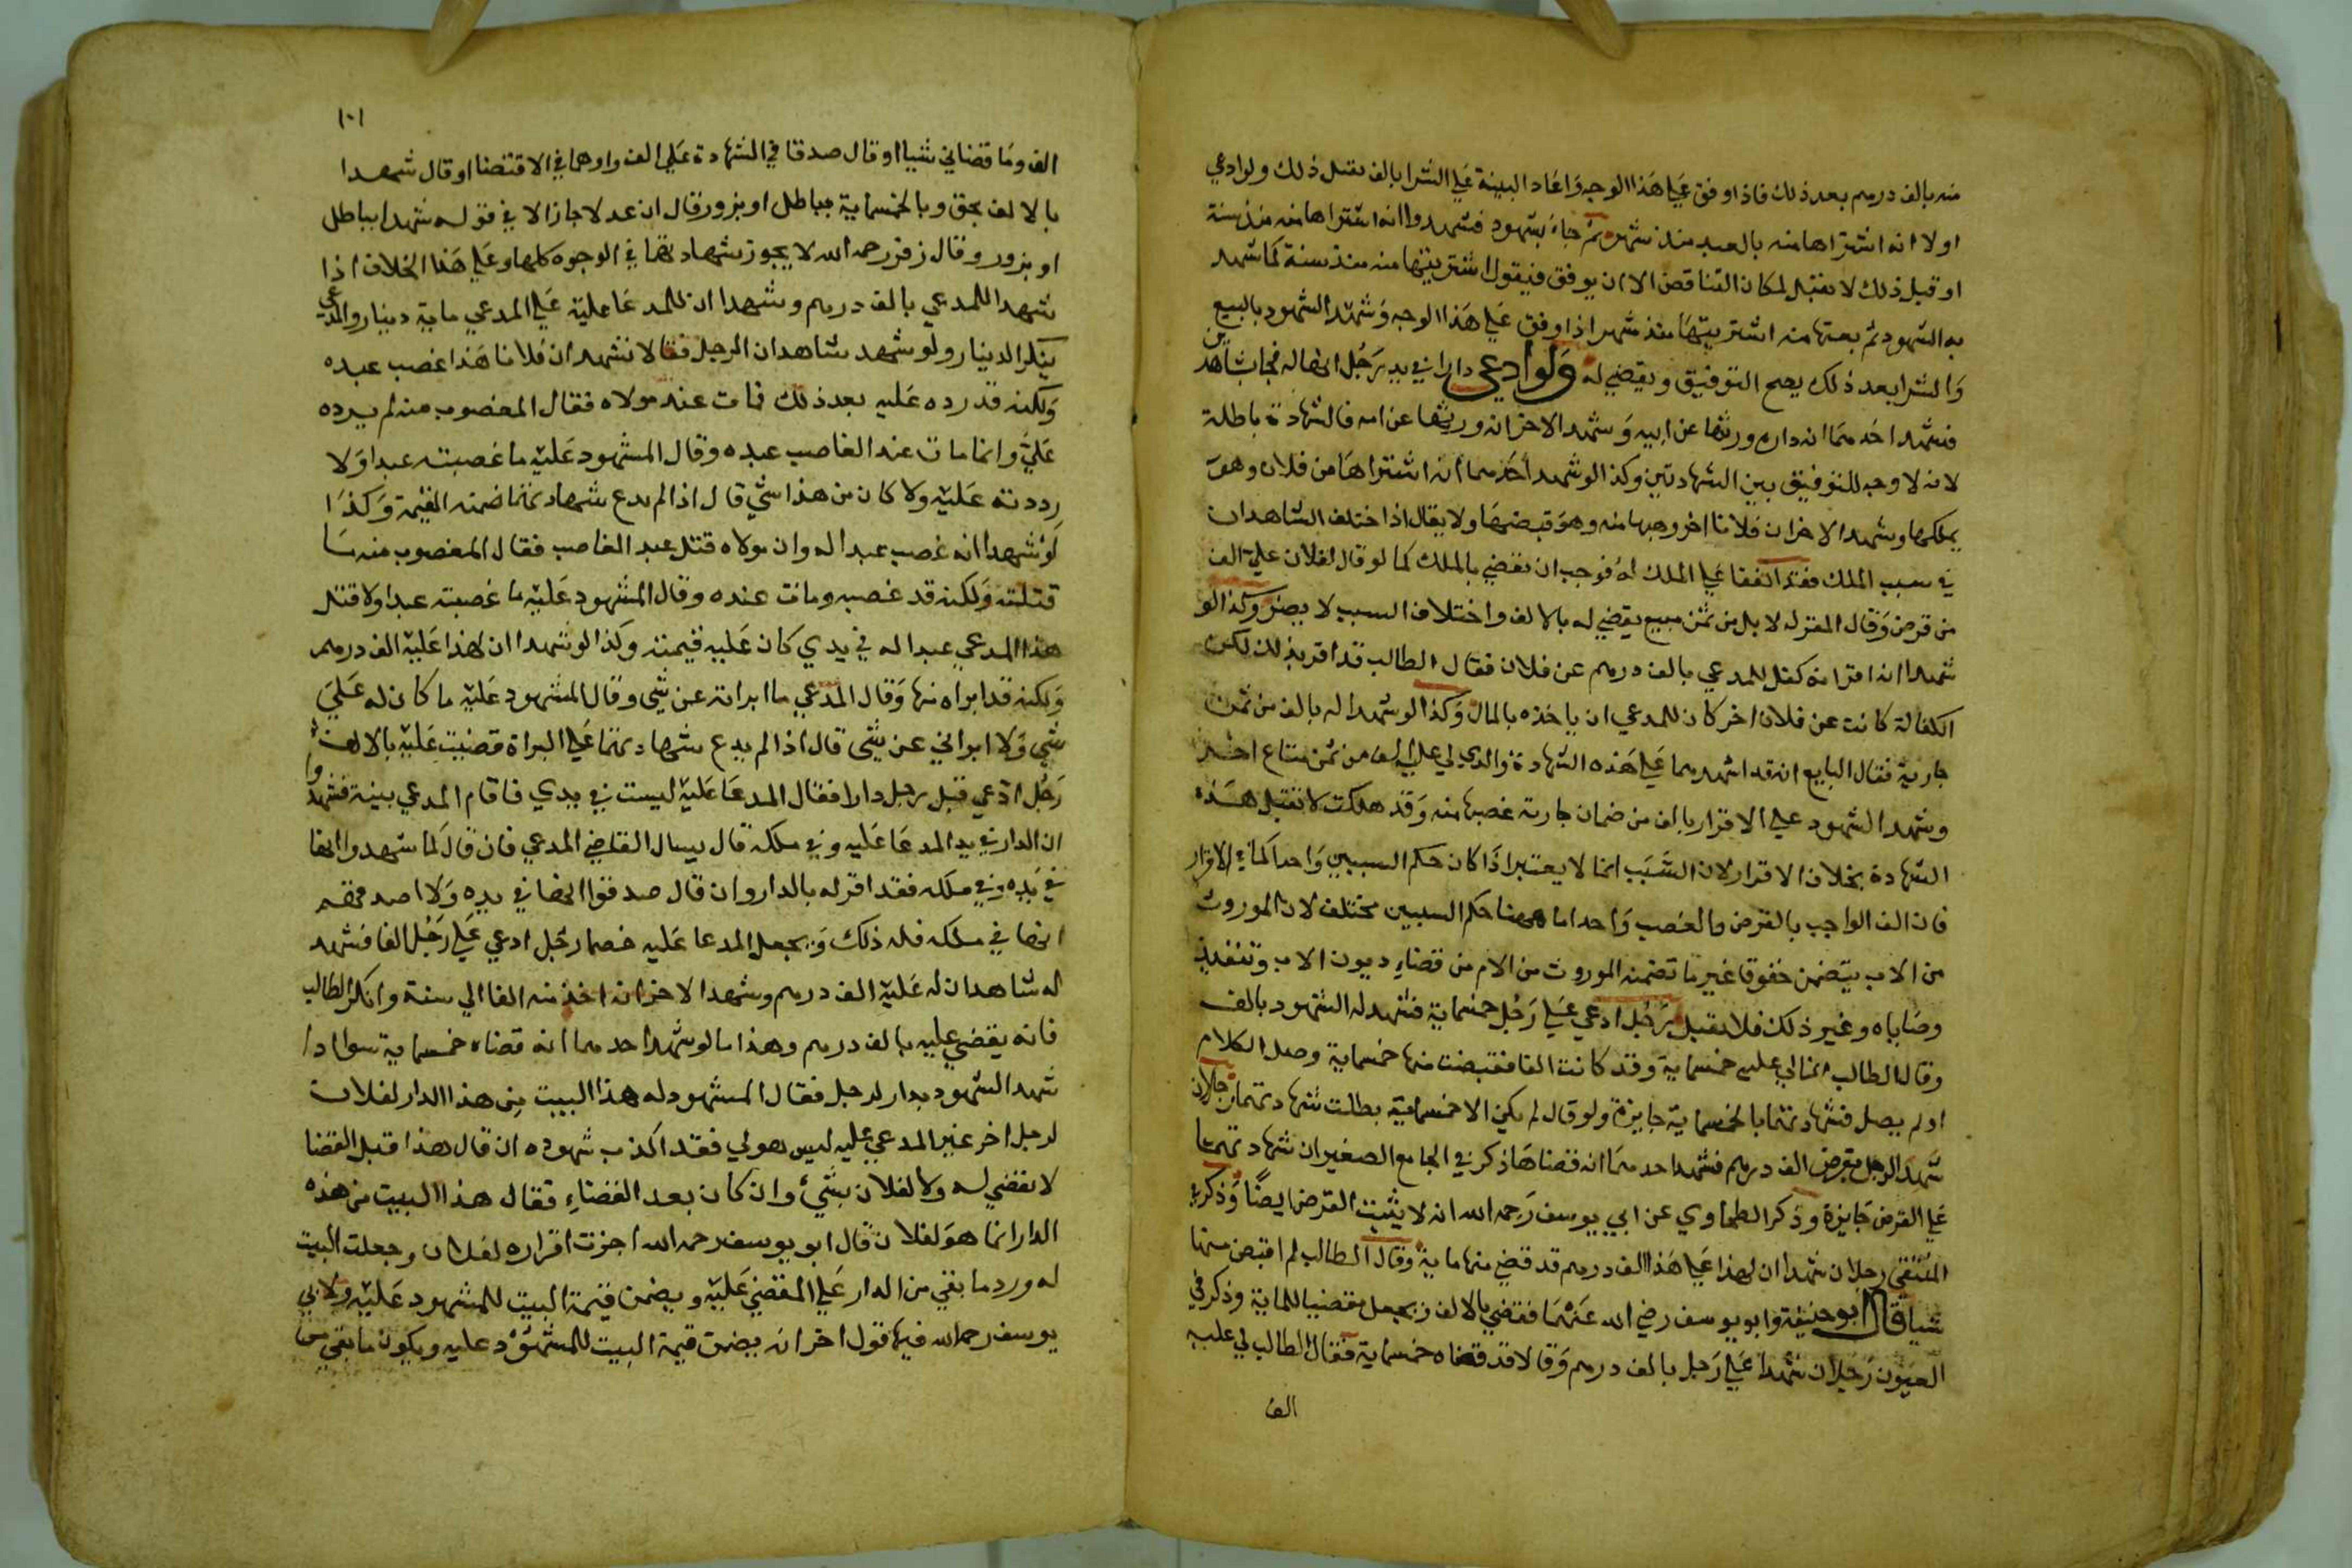 منه بالف درهم بعد ذلك فاذا وفق علي هذا الوجه واعاد البينة علي الشرا بالف تقبل ذلك ولو ادعي
اولا انه اشتراها منه بالعبد منذ شهر ثم جاء بشهود فشهدوا انه اشتراها منه منذ سنة
او قبل ذلك لا تقبل لمكان التناقض الا ان يوفق فيقول اشتريتها منه منذ سنة كما شهد
به الشهود ثم بعتها منه اشتريتها منذ شهر اذا وفق علي هذا الوجه وشهد الشهود بالبيع
والشرا بعد ذلك يصح التوفيق ويقضي له ولو ادعي دارا في يد رجل انها له فجا بشاهدين
فشهد احدهما ان داره ورثها عن ابيه وشهد الاخر انه ورثها عن امه فالشهادة باطلة
لانه لا وجه للتوفيق بين الشهادتين وكذا لو شهد احدهما انه اشتراها من فلان وهو
يملكها وشهد الاخر ان فلانا اخر وهبها منه وهو قبضها ولا يقال اذا اختلف الشاهدان
في سبب الملك فقد اتفقا علي الملك له فوجب ان يقضي بالملك كما لو قال لفلان علي الف
من قرض وقال المقر له لا بل من ثمن مبيع يقضي له بالالف واختلاف السبب لا يضر وكذا لو
شهدا انه اقر انه كفل للمدعي بالف درهم عن فلان فقال الطالب قد اقر بذلك لكن
الكفالة كانت عن فلان اخر كان للمدعي ان ياخذه بالمال وكذا لو شهدا له بالف من ثمن
جارية فقال البايع انه قد اشهدهما علي هذه الشهادة والذي لي عليه الف من ثمن متاع اخر
وشهد الشهود علي الاقرار بالف من ضمان جارية غصبها منه وقد هلكت لا تقبل هذه
الشهادة بخلاف الاقرار لان السبب انما لا يعتبر اذا كان حكم السببين واحدا كما في الاقرار
فان الف الواجب بالقرض والغصب واحد اما ههنا حكم السببين مختلف لان الموروث
من الاب يتضمن حقوقا غير ما تضمنه الموروث من الام من قضاء ديون الاب وتنفيذ
وصاياه وغير ذلك فلا تقبل رجل ادعي علي رجل خمسماية فشهد له الشهود بالف
وقال الطالب انما لي عليه خمسماية وقد كانت الفا فقبضت منها خمسماية وصل الكلام
او لم يصل فشهادتهما بالخمسماية جايزة ولو قال لم يكن الا خمسماية بطلت شهادتهما رجلان
شهدا لرجل بقرض الف درهم فشهد احدهما انه قضاها ذكر في الجامع الصغير ان شهادتهما
علي القرض جايزة وذكر الطحاوي عن ابي يوسف رحمه الله انه لا يثبت القرض ايضا وذكر في
المنتقي رجلان شهدا ان لهذا علي هذا الف درهم قد قضي منها ماية وقال الطالب لم اقبض منها
شيا قال ابو حنيفة وابو يوسف رضي الله عنهما فقضي بالالف ويجعل مقضيا للماية وذكر في
العيون رجلان شهدا علي رجل بالف درهم وقالا قد قضاه خمسماية فقال الطالب لي عليه
الف
١٠١
الف وما قضاني شيا او قال صدقا في الشهادة علي الف واوهما في الاقتضا او قال شهدا
بالالف بحق وبالخمسماية بباطل او بزور قال ان عدلا جازا لا في قوله شهدا بباطل
او بزور وقال زفر رحمه الله لا يجوز شهادتهما في الوجوه كلها وعلي هذا الخلاف اذا
شهدا للمدعي بالف درهم وشهدا ان للمدعا عليه علي المدعي ماية دينار والمدعي
ينكر الدينار ولو شهد شاهدان لرجل فقالا نشهد ان فلانا هذا غصب عبده
ولكنه قد رده عليه بعد ذلك فمات عند مولاه فقال المغصوب منه لم يرده
علي وانما مات عند الغاصب عبده وقال المشهود عليه ما غصبته عبدا ولا
رددته عليه ولا كان من هذا شي قال اذا لم يدع شهادتهما ضمنه القيمة وكذا
لو شهدا انه غصب عبدا له وان مولاه قتل عبد الغاصب فقال المغصوب منه ما
قتلته ولكنه قد غصبه ومات عنده وقال المشهود عليه ما غصبته عبدا ولا قتل
هذا المدعي عبدا له في يدي كان عليه قيمته وكذا لو شهدا ان لهذا عليه الف درهم
ولكنه قد ابراه منها وقال المدعي ما ابراته عن شي وقال المشهود عليه ما كان له علي
شي ولا ابراني عن شي قال اذا لم يدع شهادتهما علي البراة قضيت عليه بالالف
رجل ادعي قبل رجل دارا فقال المدعا عليه ليست في يدي فاقام المدعي بينة فشهدوا
ان الدار في يد المدعا عليه وفي ملكه قال يسال القاضي المدعي فان قال كما شهدوا انها
في يده وفي ملكه فقد اقر له بالدار وان قال صدقوا انها في يده ولا اصدقهم
انها في ملكه فله ذلك ويجعل المدعا عليه خصما رجل ادعي علي رجل الفا فشهد
له شاهدان له عليه الف درهم وشهد الاخر انه اخذ منه الفا الي سنة وانكر الطالب
فانه يقضي عليه بالف درهم وهذا ما لو شهد احدهما انه قضاه خمسماية سوا اذا
شهد الشهود بدار لرجل فقال المشهود له هذا البيت من هذا الدار لفلان
لرجل اخر غير المدعي عليه ليس هو لي فقد اكذب شهوده ان قال هذا قبل القضا
لا يقضي له ولا لفلان بشئ وان كان بعد القضاء فقال هذا البيت من هذه
الدار انما هو لفلان قال ابو يوسف رحمه الله اجزت اقراره لفلان وجعلت البيت
له ورد ما بقي من الدار علي المقضي عليه ويضمن قيمة البيت للمشهود عليه ولابي
يوسف رحمه الله فيها قول اخر انه يضمن قيمة البيت للمشهود عليه ويكون ما بقي من